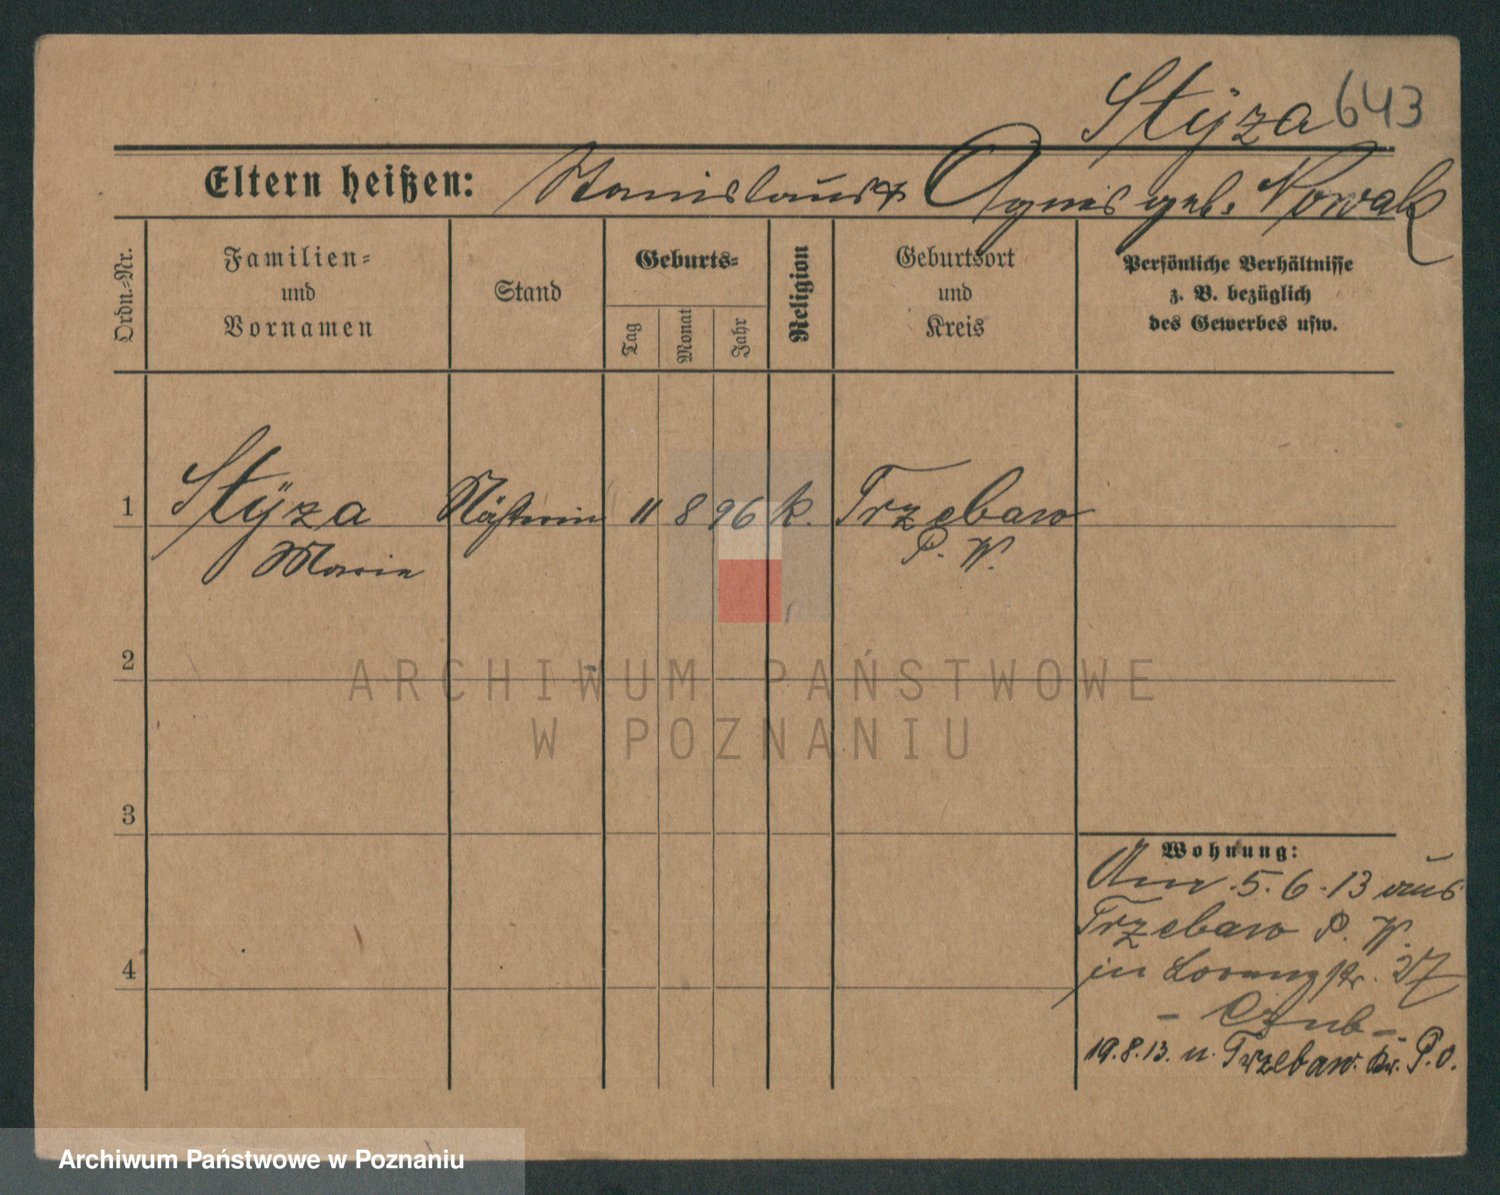 Styza 643
Eltern heißen: Stanislaus & Agnes geb. Nowak
Ordn.-Nr.
Familien-
und
Vornamen
Stand
Geburts-
Tag
Monat
Jahr
Religion
Geburtsort
und
Kreis
Persönliche Verhältnisse
z. B. bezüglich
des Gewerbes usw.
1 Styza Näherin 11 8 96 k. Trzebaw
Maria P. W.
2
3
4
Wohnung:
5.6.13 aus
Trzebaw P. W.
in 27
19.8.13. n. Trzebaw. Kr. P. O.
ARCHIWUM PAŃSTWOWE
W POZNANIU
Archiwum Państwowe w Poznaniu